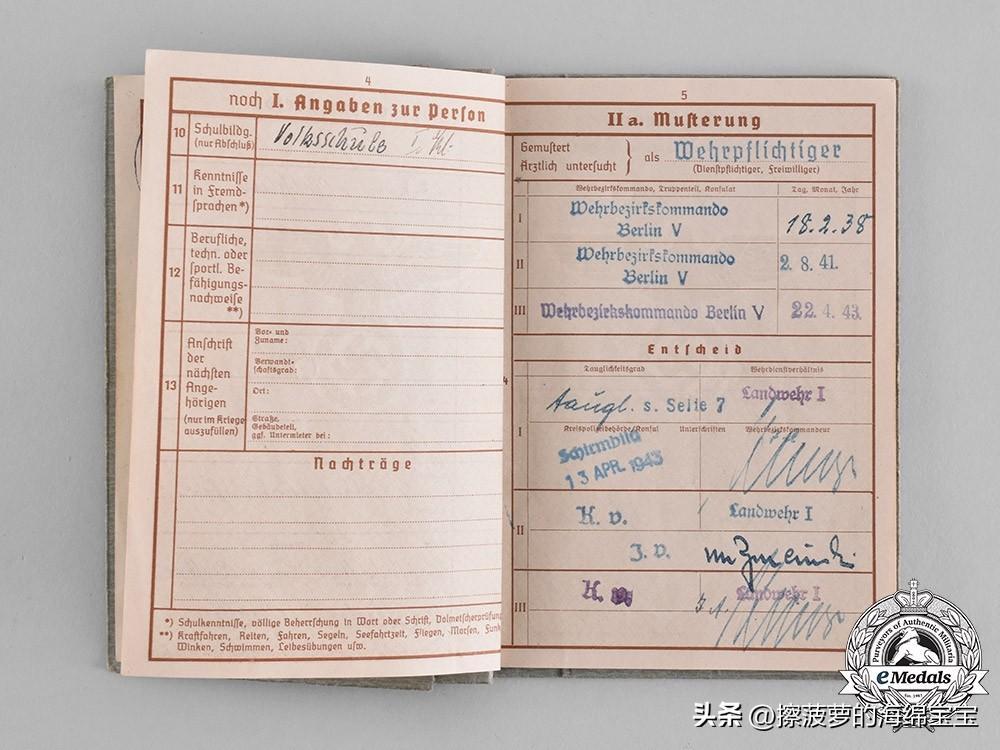 4
noch I. Angaben zur Person
10 Schulbildg. (nur Abschluß) Volksschule
11 Kenntnisse in Fremdsprachen *)
12 Berufliche, techn. oder sportl. Befähigungsnachweise **)
13 Anschrift der nächsten Angehörigen (nur im Kriege auszufüllen)
Vor- und Zuname:
Verwandtschaftsgrad:
Ort:
Straße, Gebäudeteil, ggf. Untermieter bei:
Nachträge
*) Schulkenntnisse, völlige Beherrschung in Wort oder Schrift, Dolmetscherprüfung
**) Kraftfahren, Reiten, Fahren, Segeln, Seefahrtzeit, Fliegen, Morsen, Funk
Winken, Schwimmen, Leibesübungen usw.
5
IIa. Musterung
Gemustert
Ärztlich untersucht } als Wehrpflichtiger
(Dienstpflichtiger, Freiwilliger)
Wehrbezirkskommando, Truppenteil, Konsulat Tag, Monat, Jahr
I Wehrbezirkskommando Berlin V 18.2.38
II Wehrbezirkskommando Berlin V 2.8.41.
III Wehrbezirkskommando Berlin V 22.4.43.
Entscheid
Tauglichkeitsgrad Wehrdienstverhältnis
I taugl. s. Seite 7 Landwehr I
Kreispolizeibehörde/Konsul Unterschriften Wehrbezirkskommandeur
Schirmbild
13 APR. 1943
II K. v. Landwehr I
J. V.
III K. v. Landwehr I
Purveyors of Authentic Militaria
eMedals
头条 @擦菠萝的海绵宝宝